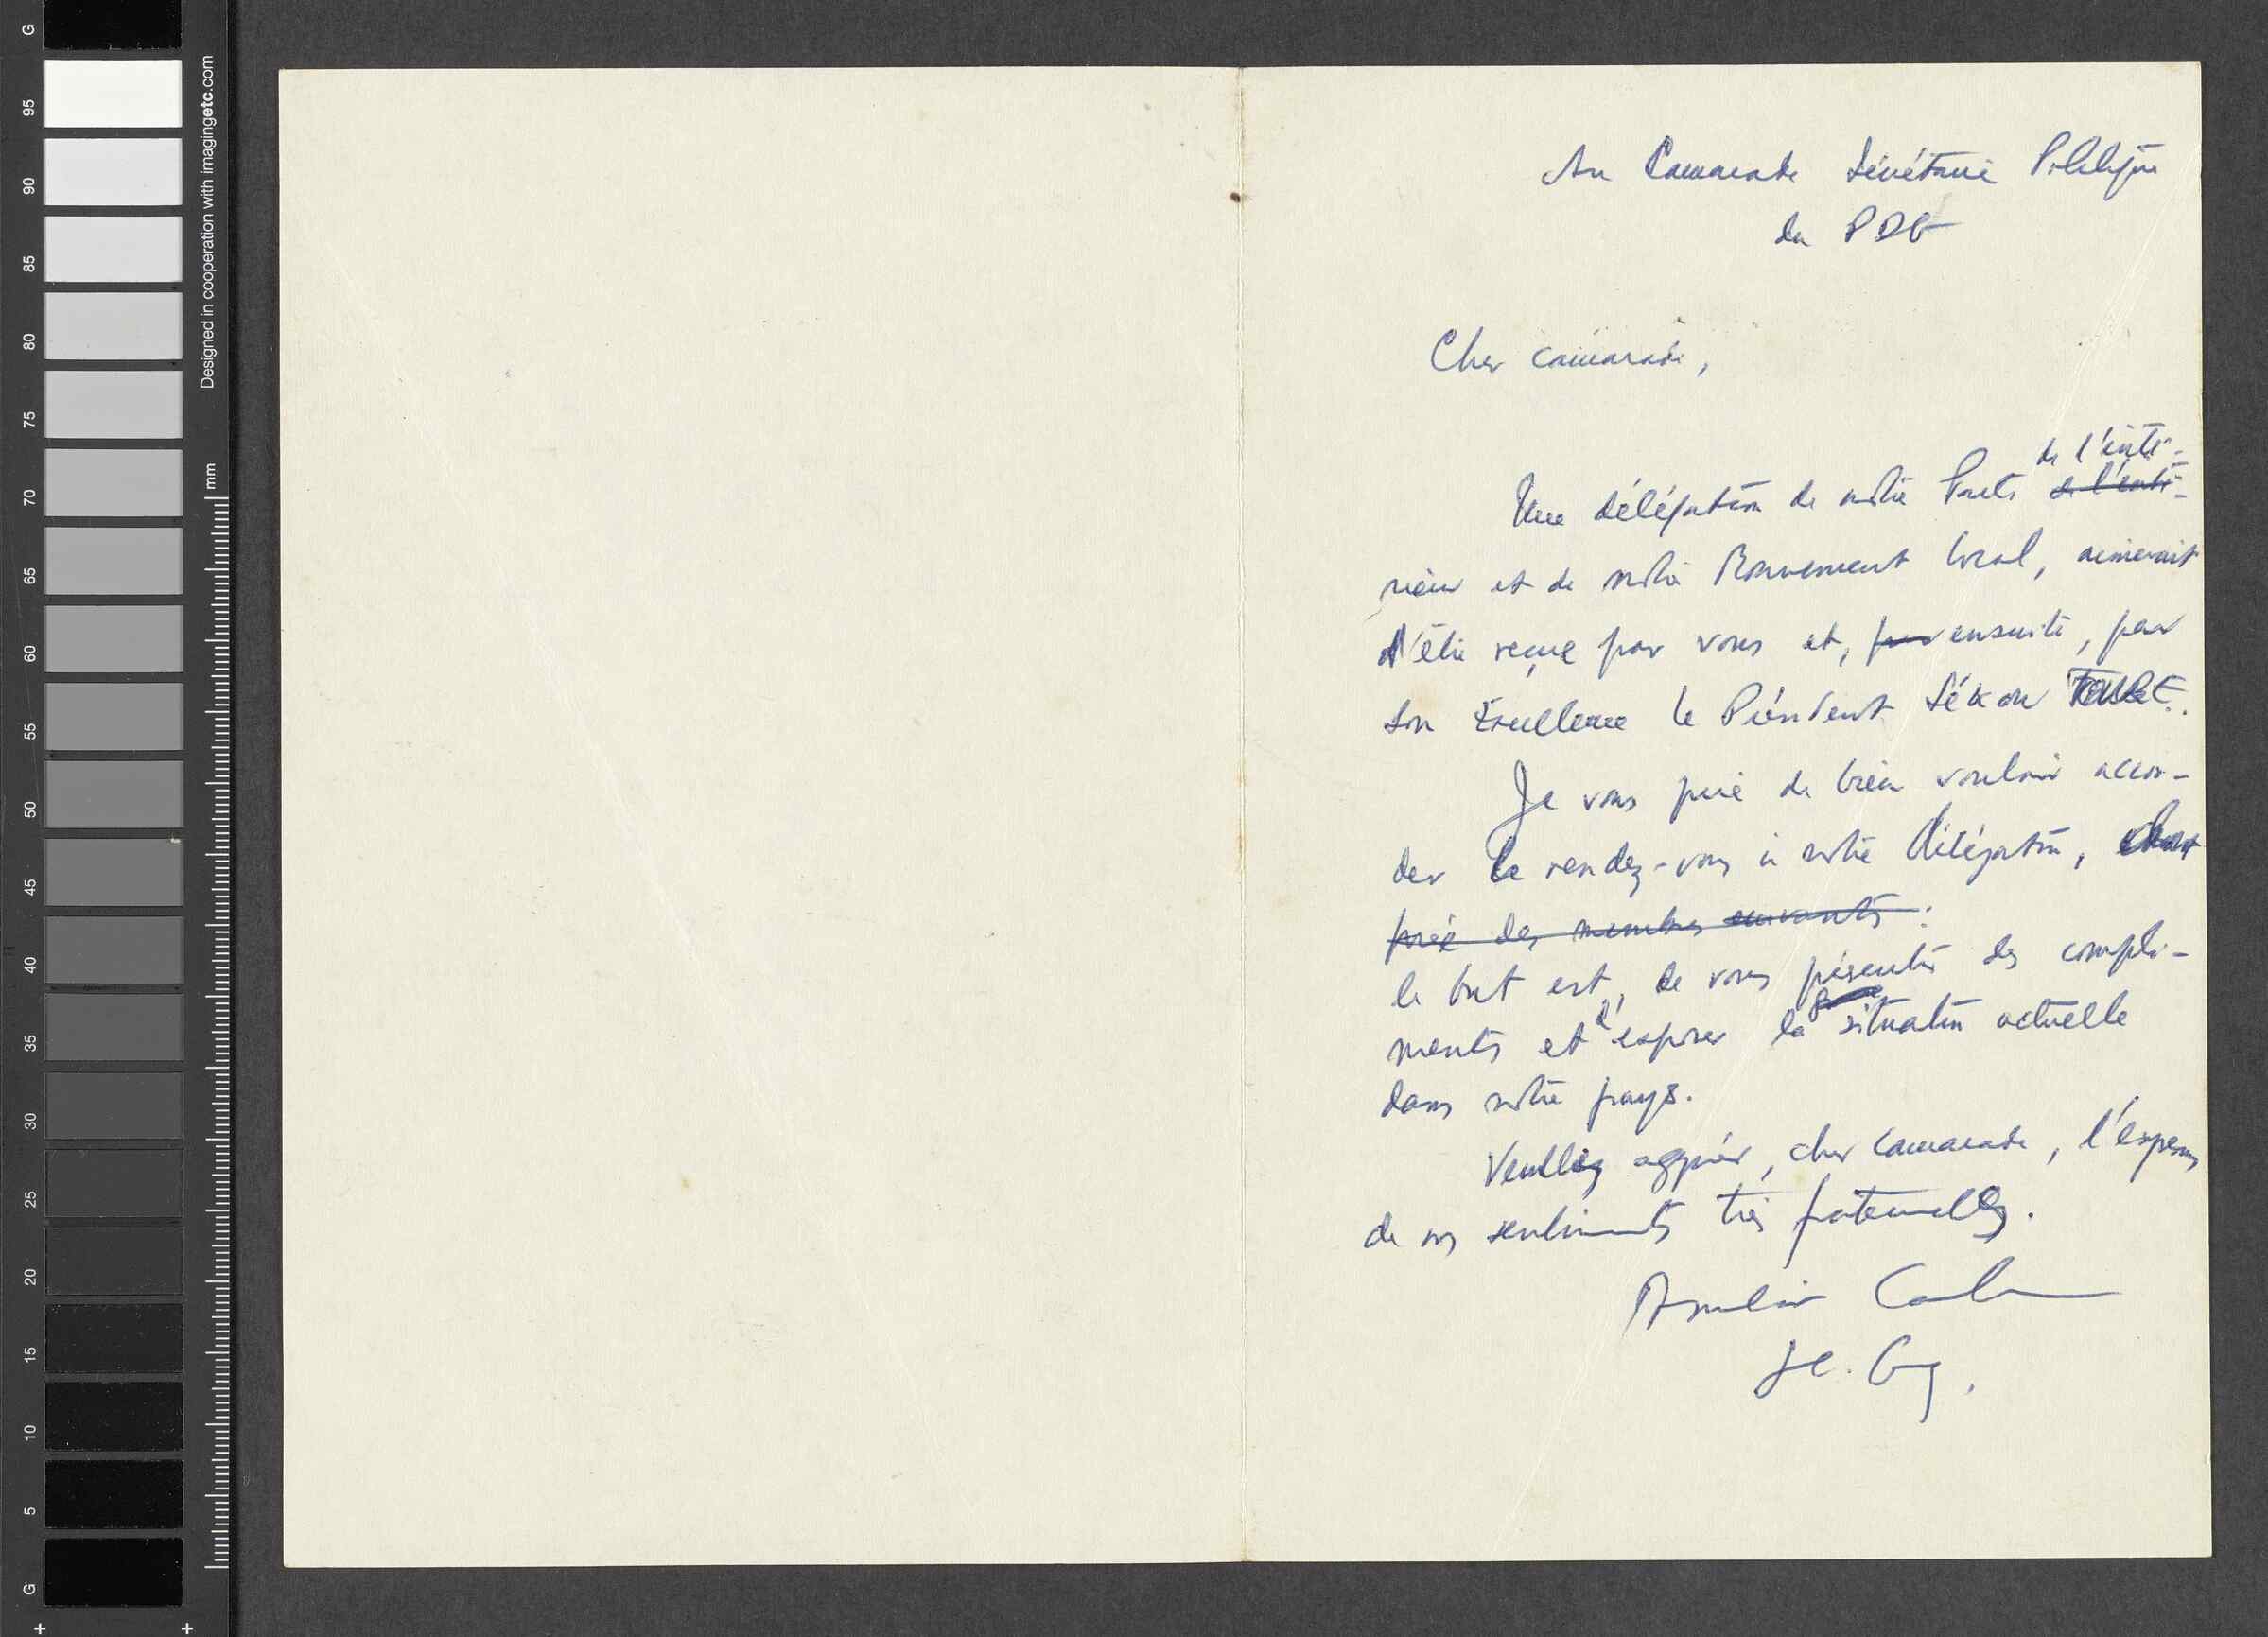 G
95
90
85
80
75
70
65
60
55
50
45
40
35
30
25
20
15
10
5
G
Designed in cooperation with imagingetc.com
mm
Au Camarade Sécrétaire Politique
du PDG
Cher camarade,
de l'inté-
Une délégation de notre Parti de l'inté-
rieur et de notre Mouvement local, aimerait
d'être reçue par vous et, par ensuite, par
Son Excellence le Président Sékou TOURÉ.
Je vous prie de bien vouloir accor-
der ce rendez-vous à notre délégation, dont
prié des membres suivants :
le but est, de vous présenter des compli-
ments et d'exposer la situation actuelle
dans notre pays.
Veuillez agréer, cher camarade, l'express
de nos sentiments très fraternelles.
Amílcar Cabral